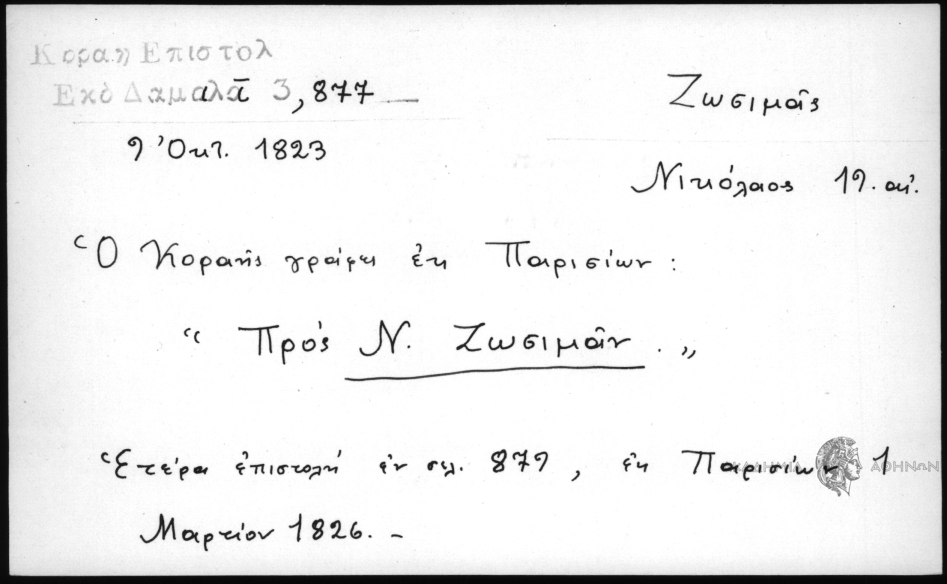 Κοραῆ Επιστολ
Εκδ Δαμαλᾶ 3, 877
9 Ὀκτ. 1823
Ζωσιμᾶς
Νικόλαος 19. αἰ.
Ὁ Κοραῆς γράφει ἐκ Παρισίων :
“ Πρός Ν. Ζωσιμᾶν . „
Ἑτέρα ἐπιστολή ἐν σελ. 879, ἐκ Παρισίων 1
Μαρτίου 1826. -
ΑΚΑΔΗΜΙΑ ΑΘΗΝΩΝ